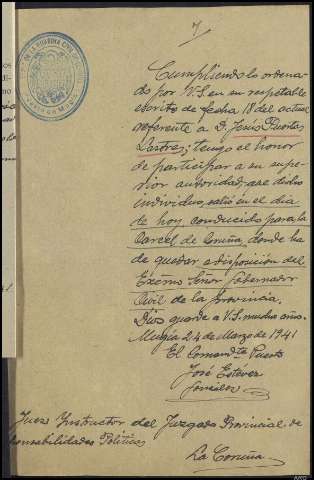 7
Cumpliendo lo ordena-
do por V.S. en su respetable
escrito de fecha 18 del actual
referente a D. Jesús Puertas
Lastres; tengo el honor
de participar a su supe-
rior autoridad, que dicho
individuo, salió en el dia
de hoy, conducido para la
Carcel de Coruña, donde ha
de quedar a disposición del
Excmo Señor Gobernador
Civil de la provincia.
Dios guarde a V.S. muchos años.
Mugia 24 de Marzo de 1941
El Comandte Puesto
José Estevez
González
Juez Instructor del Juzgado Provincial de
ponsabilidades Politicas
La Coruña